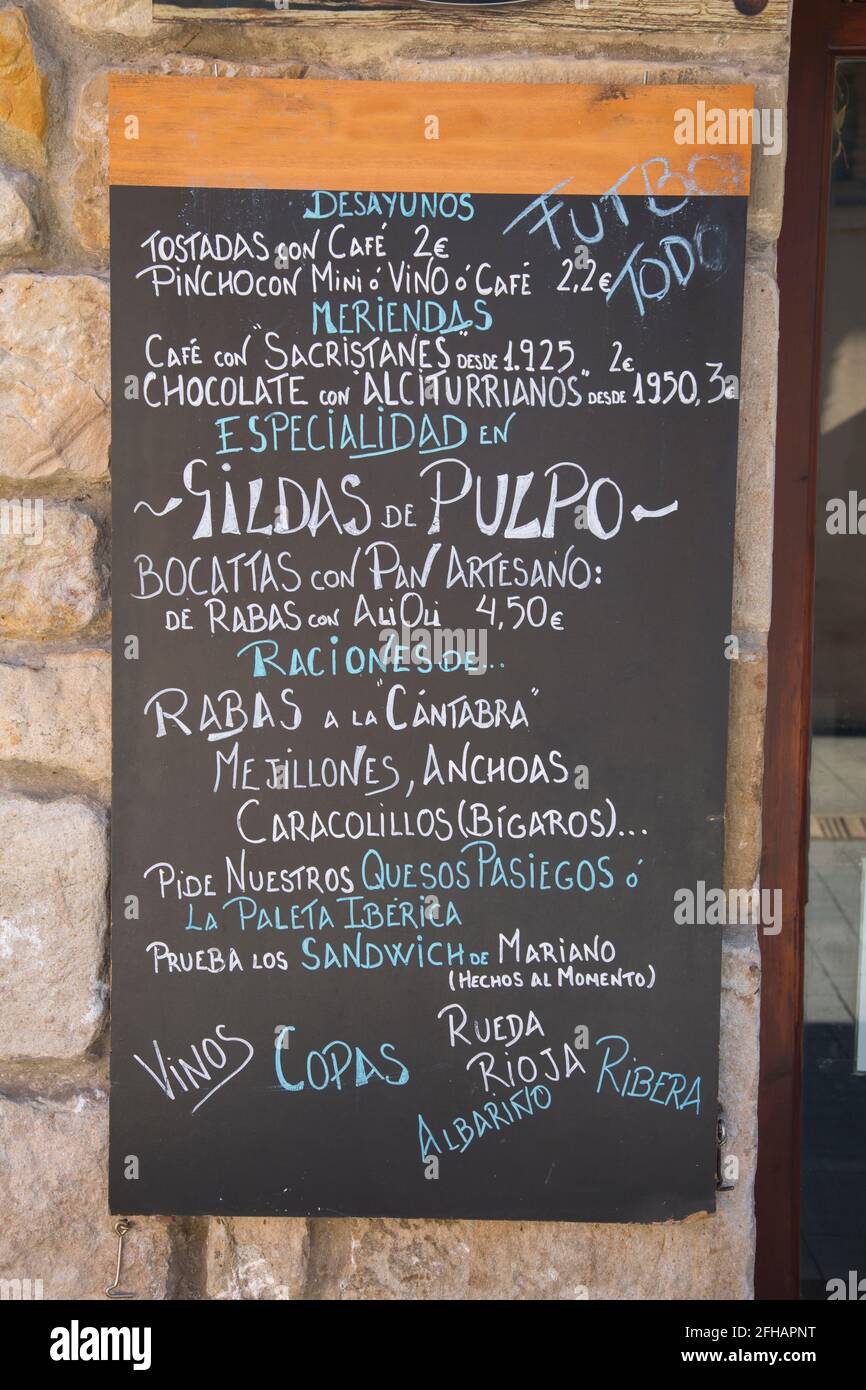 DESAYUNOS
FUTBOL
TODO
TOSTADAS CON CAFÉ 2€
PINCHO CON MINI Ó VINO Ó CAFÉ 2,2€
MERIENDAS
CAFÉ CON "SACRISTANES" DESDE 1.925 2€
CHOCOLATE CON "ALCITURRIANOS" DESDE 1950, 3€
ESPECIALIDAD EN
~GILDAS DE PULPO~
BOCATTAS CON PAN ARTESANO:
DE RABAS CON ALI OLI 4,50€
RACIONES DE...
RABAS A LA "CÁNTABRA"
MEJILLONES, ANCHOAS
CARACOLILLOS (BÍGAROS)...
PIDE NUESTROS QUESOS PASIEGOS Ó
LA PALETA IBÉRICA
PRUEBA LOS SANDWICH DE MARIANO
(HECHOS AL MOMENTO)
VINOS COPAS RUEDA
RIOJA RIBERA
ALBARIÑO
alamy
Image ID: 2FHAPNT
www.alamy.com